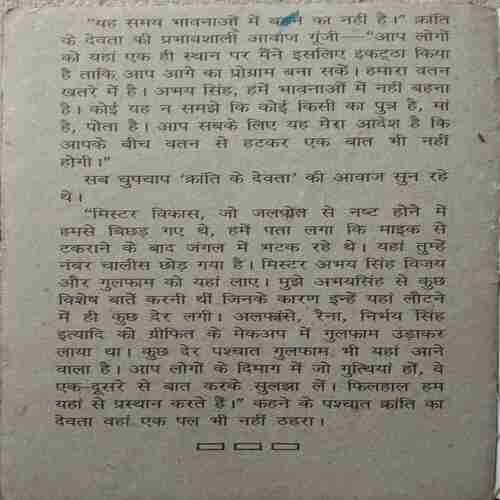 “यह समय भावनाओं में बहने का नहीं है।” क्रांति
के देवता की प्रभावशाली आवाज गूंजी—“आप लोगों
को यहां एक ही स्थान पर मैंने इसलिए इकट्ठा किया
है ताकि आप आगे का प्रोग्राम बना सकें। हमारा वतन
खतरे में है। अभय सिंह, हमें भावनाओं में नहीं बहना
है। कोई यह न समझे कि कोई किसी का पुत्र है, मां
है, पोता है। आप सबके लिए यह मेरा आदेश है कि
आपके बीच वतन से हटकर एक बात भी नहीं
होगी।”
सब चुपचाप ‘क्रांति के देवता’ की आवाज सुन रहे
थे।
“मिस्टर विकास, जो जलपोत से नष्ट होने में
हमसे बिछड़ गए थे, हमें पता लगा कि माइक से
टकराने के बाद जंगल में भटक रहे थे। यहां तुम्हें
नंबर चालीस छोड़ गया है। मिस्टर अभय सिंह विजय
और गुलफाम को यहां लाए। मुझे अभयसिंह से कुछ
विशेष बातें करनी थीं जिनके कारण इन्हें यहां लौटने
में ही कुछ देर लगी। अलफांसे, रैना, निर्भय सिंह
इत्यादि को ग्रीफित के मेकअप में गुलफाम उड़ाकर
लाया था। कुछ देर पश्चात गुलफाम भी यहां आने
वाला है। आप लोगों के दिमाग में जो गुत्थियां हों, वे
एक-दूसरे से बात करके सुलझा लें। फिलहाल हम
यहां से प्रस्थान करते हैं।” कहने के पश्चात क्रांति का
देवता वहां एक पल भी नहीं ठहरा।